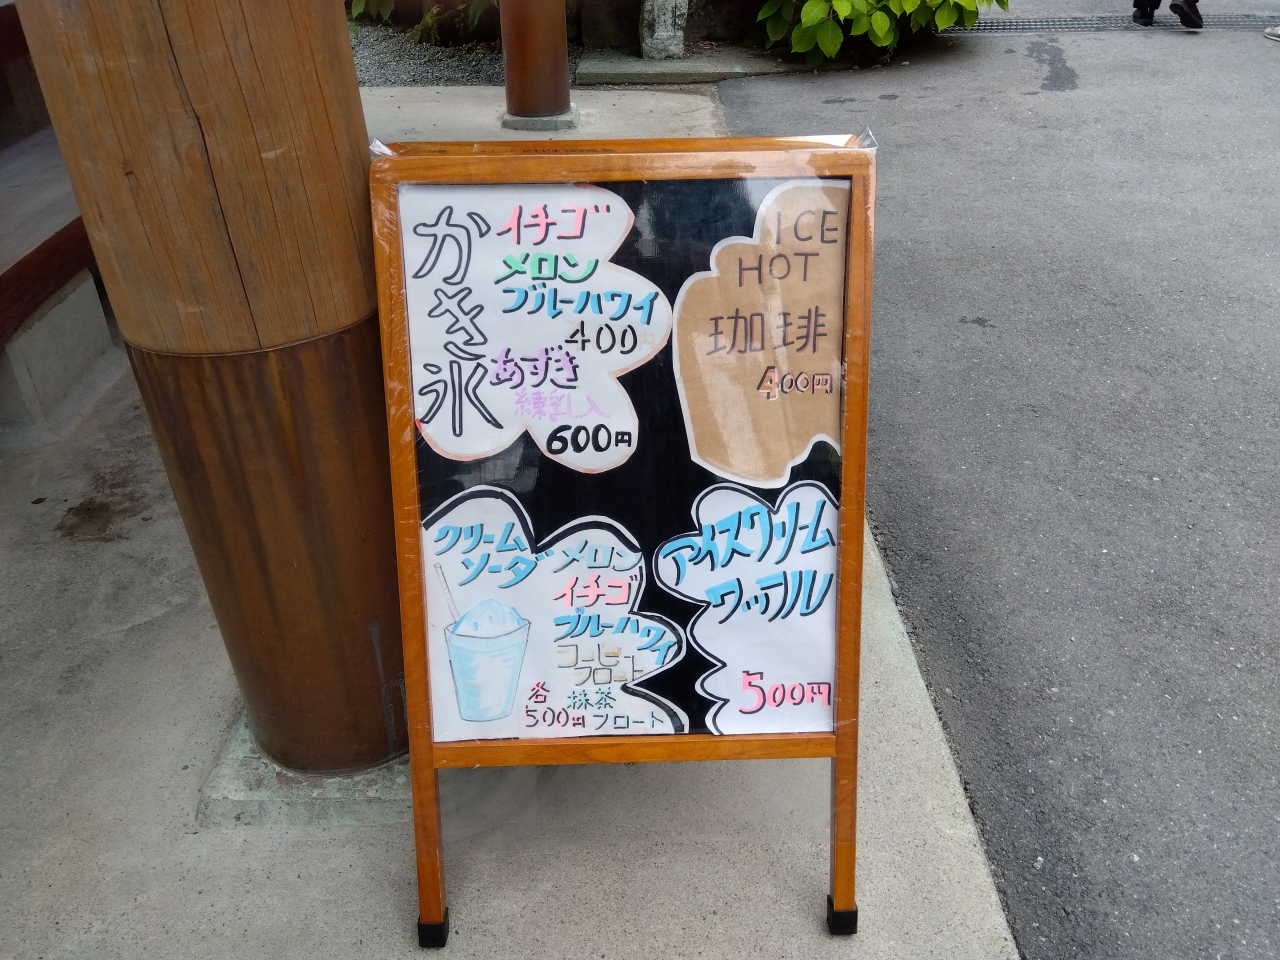 かき氷
イチゴ
メロン
ブルーハワイ
400
あずき
練乳入
600円
ICE
HOT
珈琲
400円
クリーム
ソーダ
メロン
イチゴ
ブルーハワイ
コーヒー
フロート
抹茶
フロート
各
500円
アイスクリーム
ワッフル
500円